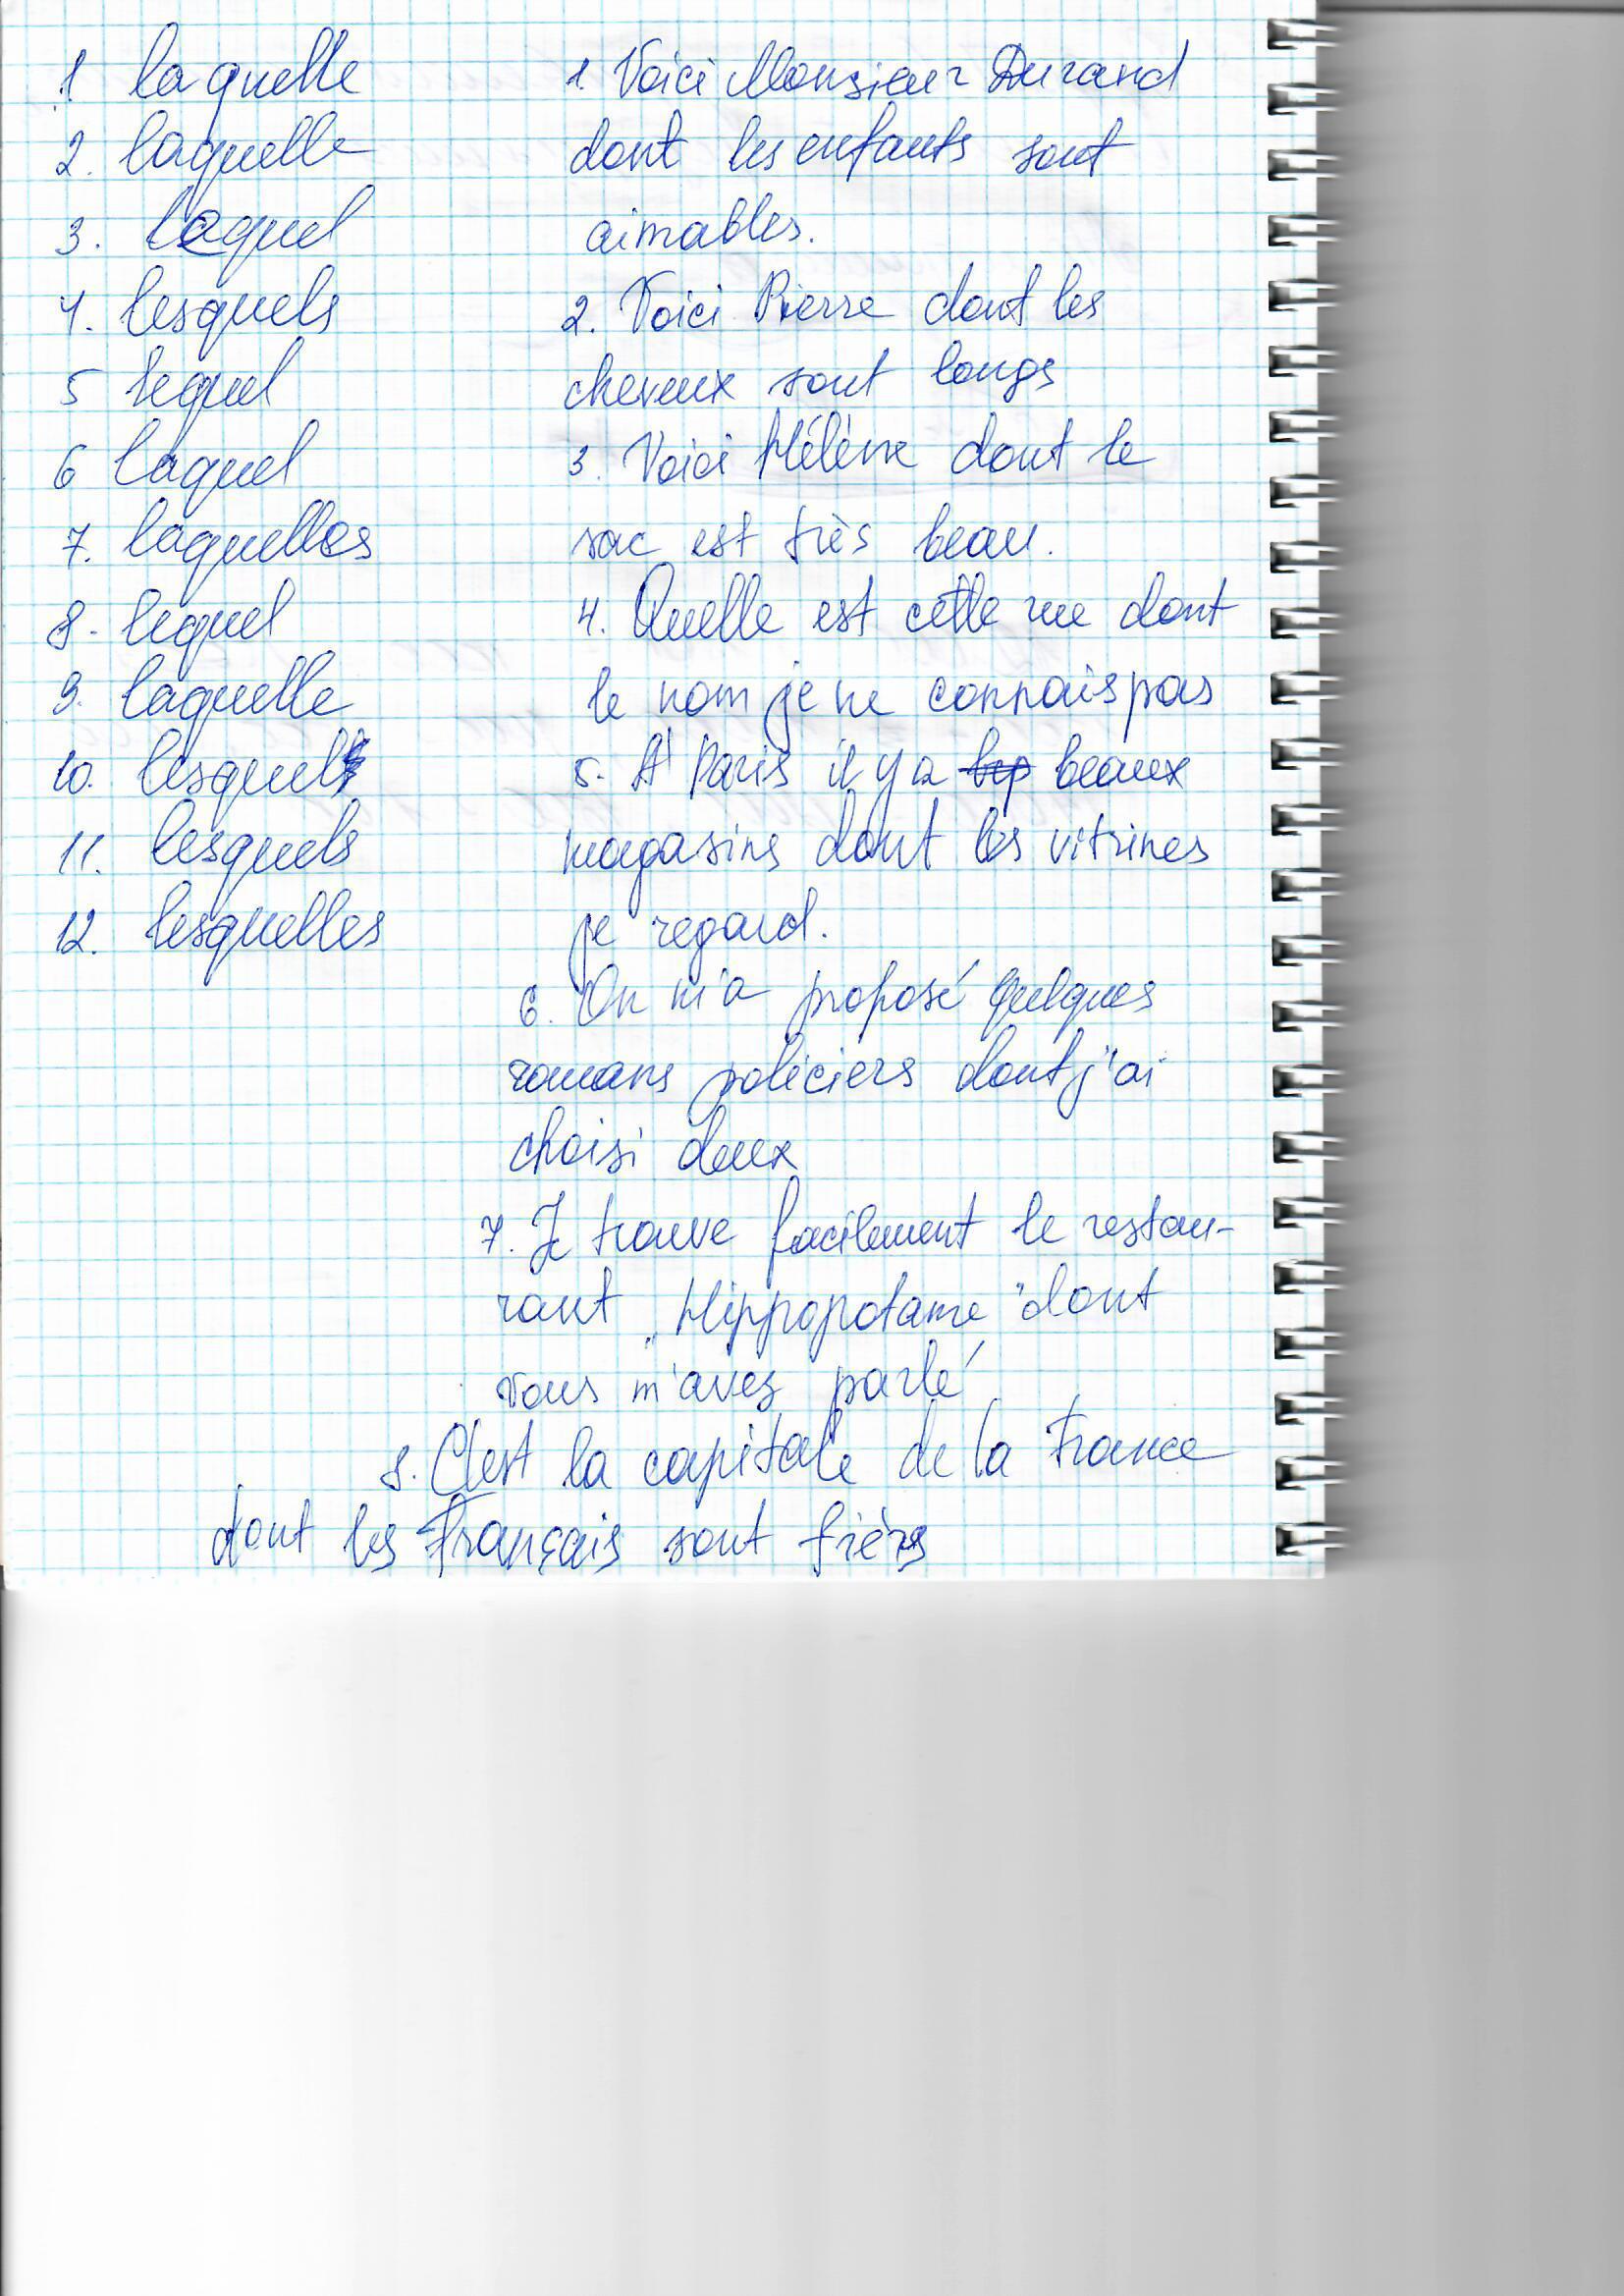 1 laquelle
2. laquelle
3. lequel
4. lesquels
5 lequel
6 laquel
7. laquelles
8. lequel
9. laquelle
10. lesquels
11. lesquels
12. lesquelles
1. Voici Monsieur Durand
dont les enfants sont
aimables.
2. Voici Pierre dont les
cheveux sont longs
3. Voici Hélène dont le
sac est très beau.
4. Quelle est cette rue dont
le nom je ne connais pas
5. A Paris il y a beaux
magasins dont les vitrines
je regard.
6. On m'a proposé quelques
romans policiers dont j'ai
choisi deux
7. Je trouve facilement le restau-
rant „Hippopotame" dont
vous m'avez parlé
8. C'est la capitale de la France
dont les Français sont fièrs